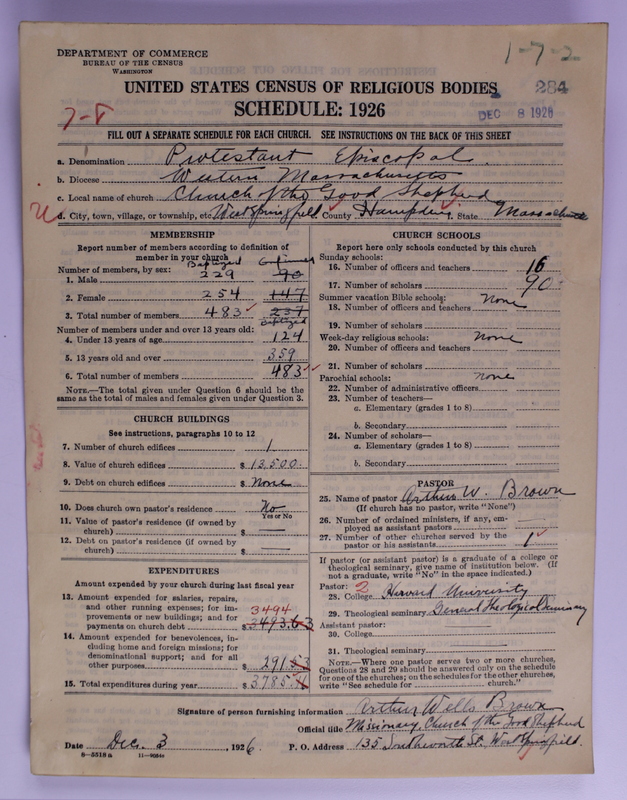 DEPARTMENT OF COMMERCE
BUREAU OF THE CENSUS
WASHINGTON
1-7-2
UNITED STATES CENSUS OF RELIGIOUS BODIES
284
SCHEDULE: 1926
DEC 8 1926
7-8
FILL OUT A SEPARATE SCHEDULE FOR EACH CHURCH. SEE INSTRUCTIONS ON THE BACK OF THIS SHEET
a. Denomination Protestant Episcopal
b. Diocese Western Massachusetts
c. Local name of church Church of the Good Shepherd
d. City, town, village, or township, etc. West Springfield County Hampden f. State Massachusetts
MEMBERSHIP
Report number of members according to definition of
member in your church
Number of members, by sex: Baptized Confirmed
1. Male 229 90
2. Female 254 147
3. Total number of members 483 237
Number of members under and over 13 years old: Baptized
4. Under 13 years of age 124
5. 13 years old and over 359
6. Total number of members 483
NOTE.—The total given under Question 6 should be the
same as the total of males and females given under Question 3.
CHURCH BUILDINGS
See instructions, paragraphs 10 to 12
7. Number of church edifices 1
8. Value of church edifices $ 13,500.
9. Debt on church edifices $ None
10. Does church own pastor's residence No
Yes or No
11. Value of pastor's residence (if owned by
church) $ —
12. Debt on pastor's residence (if owned by
church) $ —
EXPENDITURES
Amount expended by your church during last fiscal year
13. Amount expended for salaries, repairs,
and other running expenses; for im-
provements or new buildings; and for
payments on church debt 3494
$ 3493.63
14. Amount expended for benevolences, in-
cluding home and foreign missions; for
denominational support; and for all
other purposes $ 291
15. Total expenditures during year $ 3785
CHURCH SCHOOLS
Report here only schools conducted by this church
Sunday schools:
16. Number of officers and teachers 16
17. Number of scholars 90
Summer vacation Bible schools: None
18. Number of officers and teachers
19. Number of scholars
Week-day religious schools: None
20. Number of officers and teachers
21. Number of scholars
Parochial schools: None
22. Number of administrative officers
23. Number of teachers—
a. Elementary (grades 1 to 8)
b. Secondary
24. Number of scholars—
a. Elementary (grades 1 to 8)
b. Secondary
PASTOR
25. Name of pastor Arthur W. Brown
(If church has no pastor, write "None")
26. Number of ordained ministers, if any, em-
ployed as assistant pastors —
27. Number of other churches served by the
pastor or his assistants 1
If pastor (or assistant pastor) is a graduate of a college or
theological seminary, give name of institution below. (If
not a graduate, write "No" in the space indicated.)
Pastor: 2
28. College Harvard University
29. Theological seminary General Theological Seminary
Assistant pastor:
30. College
31. Theological seminary
NOTE.—Where one pastor serves two or more churches,
Questions 28 and 29 should be answered only on the schedule
for one of the churches; on the schedules for the other churches,
write "See schedule for ______ church."
Signature of person furnishing information Arthur Wells Brown
Official title Missionary, Church of the Good Shepherd
Date Dec. 3, 1926. P. O. Address 135 Southworth St. West Springfield.
8-5518 a